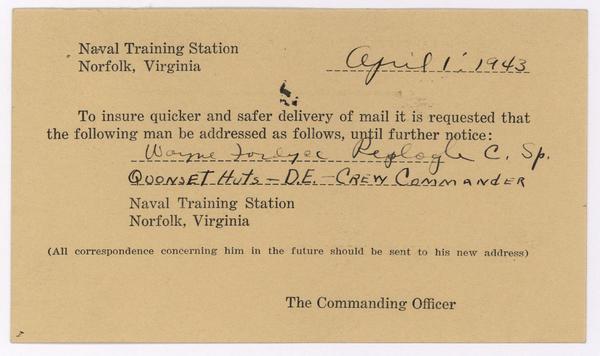 Naval Training Station
Norfolk, Virginia
April 1, 1943
To insure quicker and safer delivery of mail it is requested that
the following man be addressed as follows, until further notice:
Wayne Fordyce Replogle C. Sp.
QUONSET HUTS - D.E. - CREW COMMANDER
Naval Training Station
Norfolk, Virginia
(All correspondence concerning him in the future should be sent to his new address)
The Commanding Officer